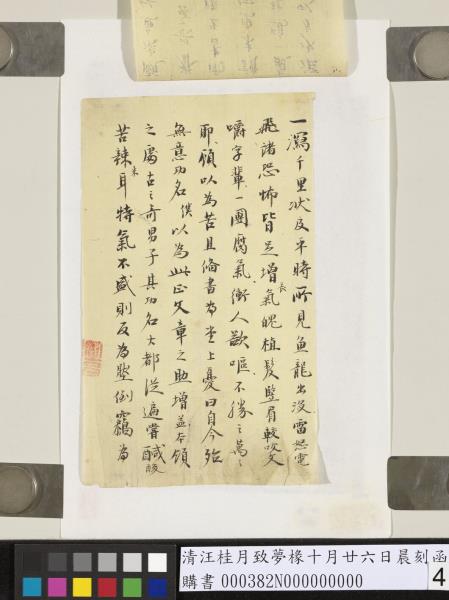 一瀉千里狀及平時所見魚龍出沒雷怒電
飛諸恐怖皆足增長氣魄植髮豎眉較咬文
嚼字輩一團腐氣衝人欲嘔不勝之萬々
耶以為苦且脩書為堂上憂曰自今殆
無意功名僕以為此正文章之助增益本領
之處古之奇男子其功名大都從遍嘗鹹酸
苦辣來耳特氣不盛則反為倒竊為
清汪桂月致夢椽十月廿六日晨刻函
購書 000382N000000000
4